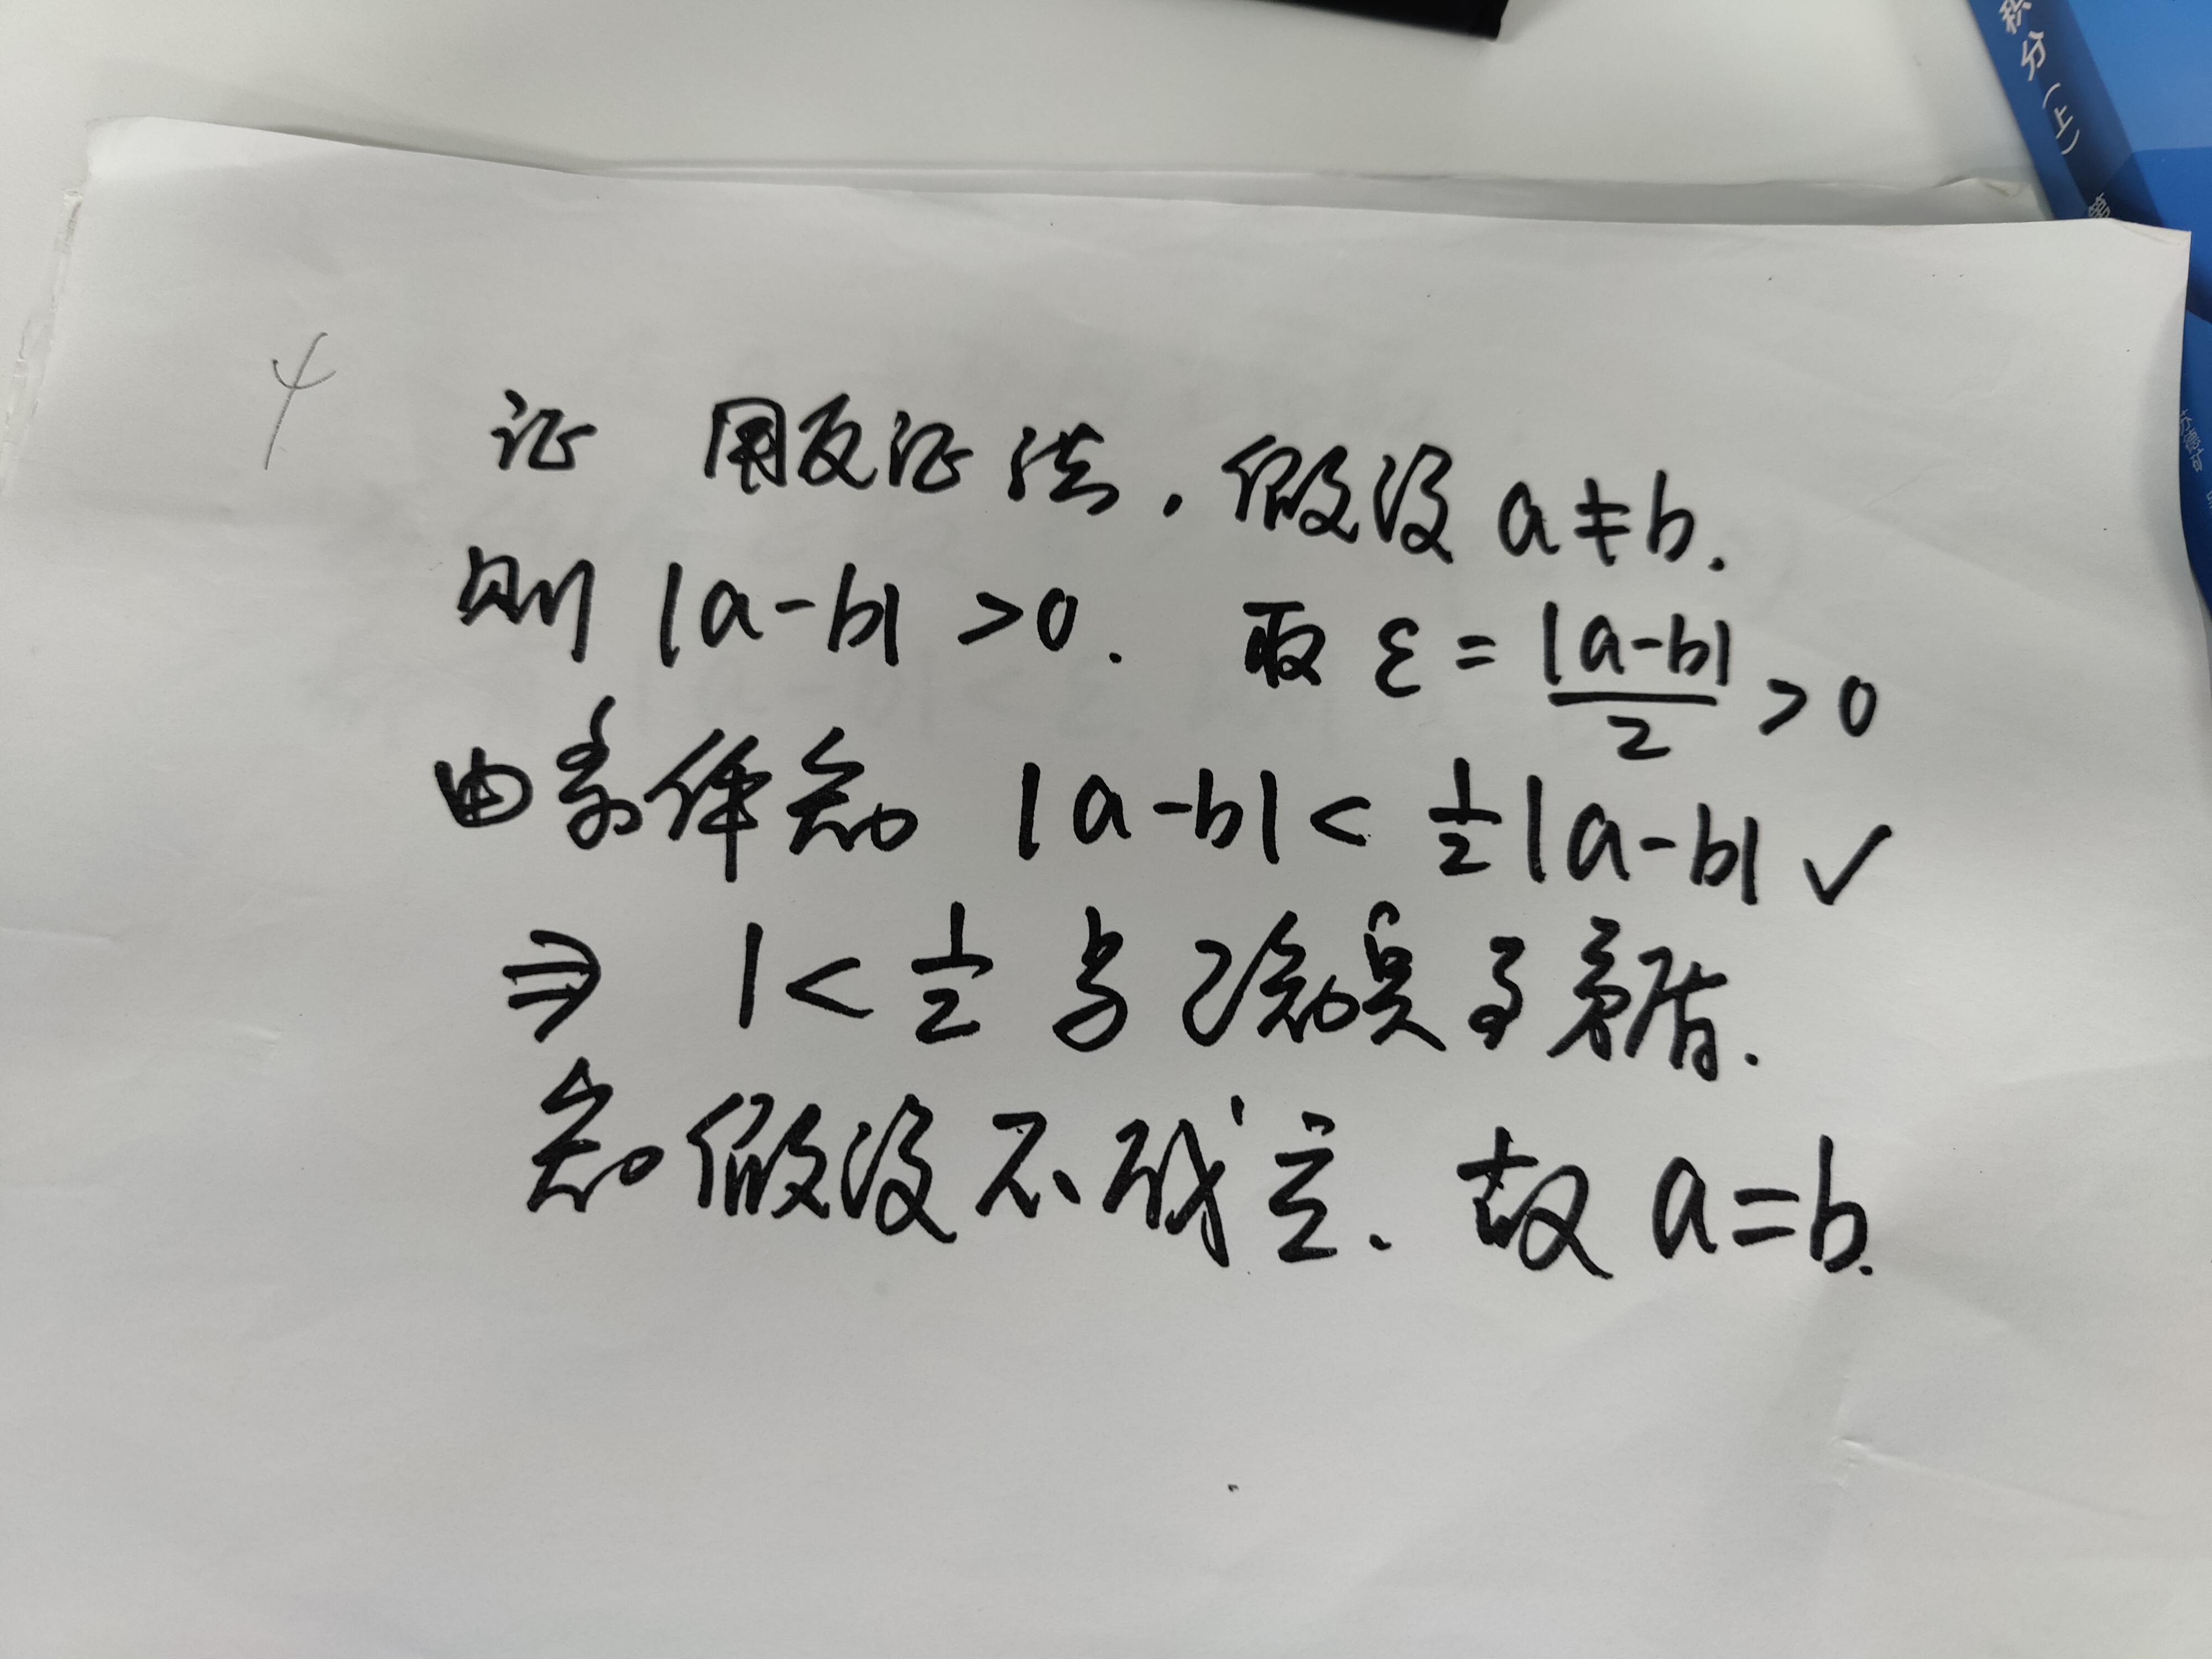 积分(上)
第
4
证 用反证法. 假设 a≠b.
则 |a-b| >0. 取 ε = |a-b|/2 >0
由条件知 |a-b| < 1/2 |a-b| ✓
⇒ 1 < 1/2 与已知真了矛盾.
知假设不成立. 故 a=b.